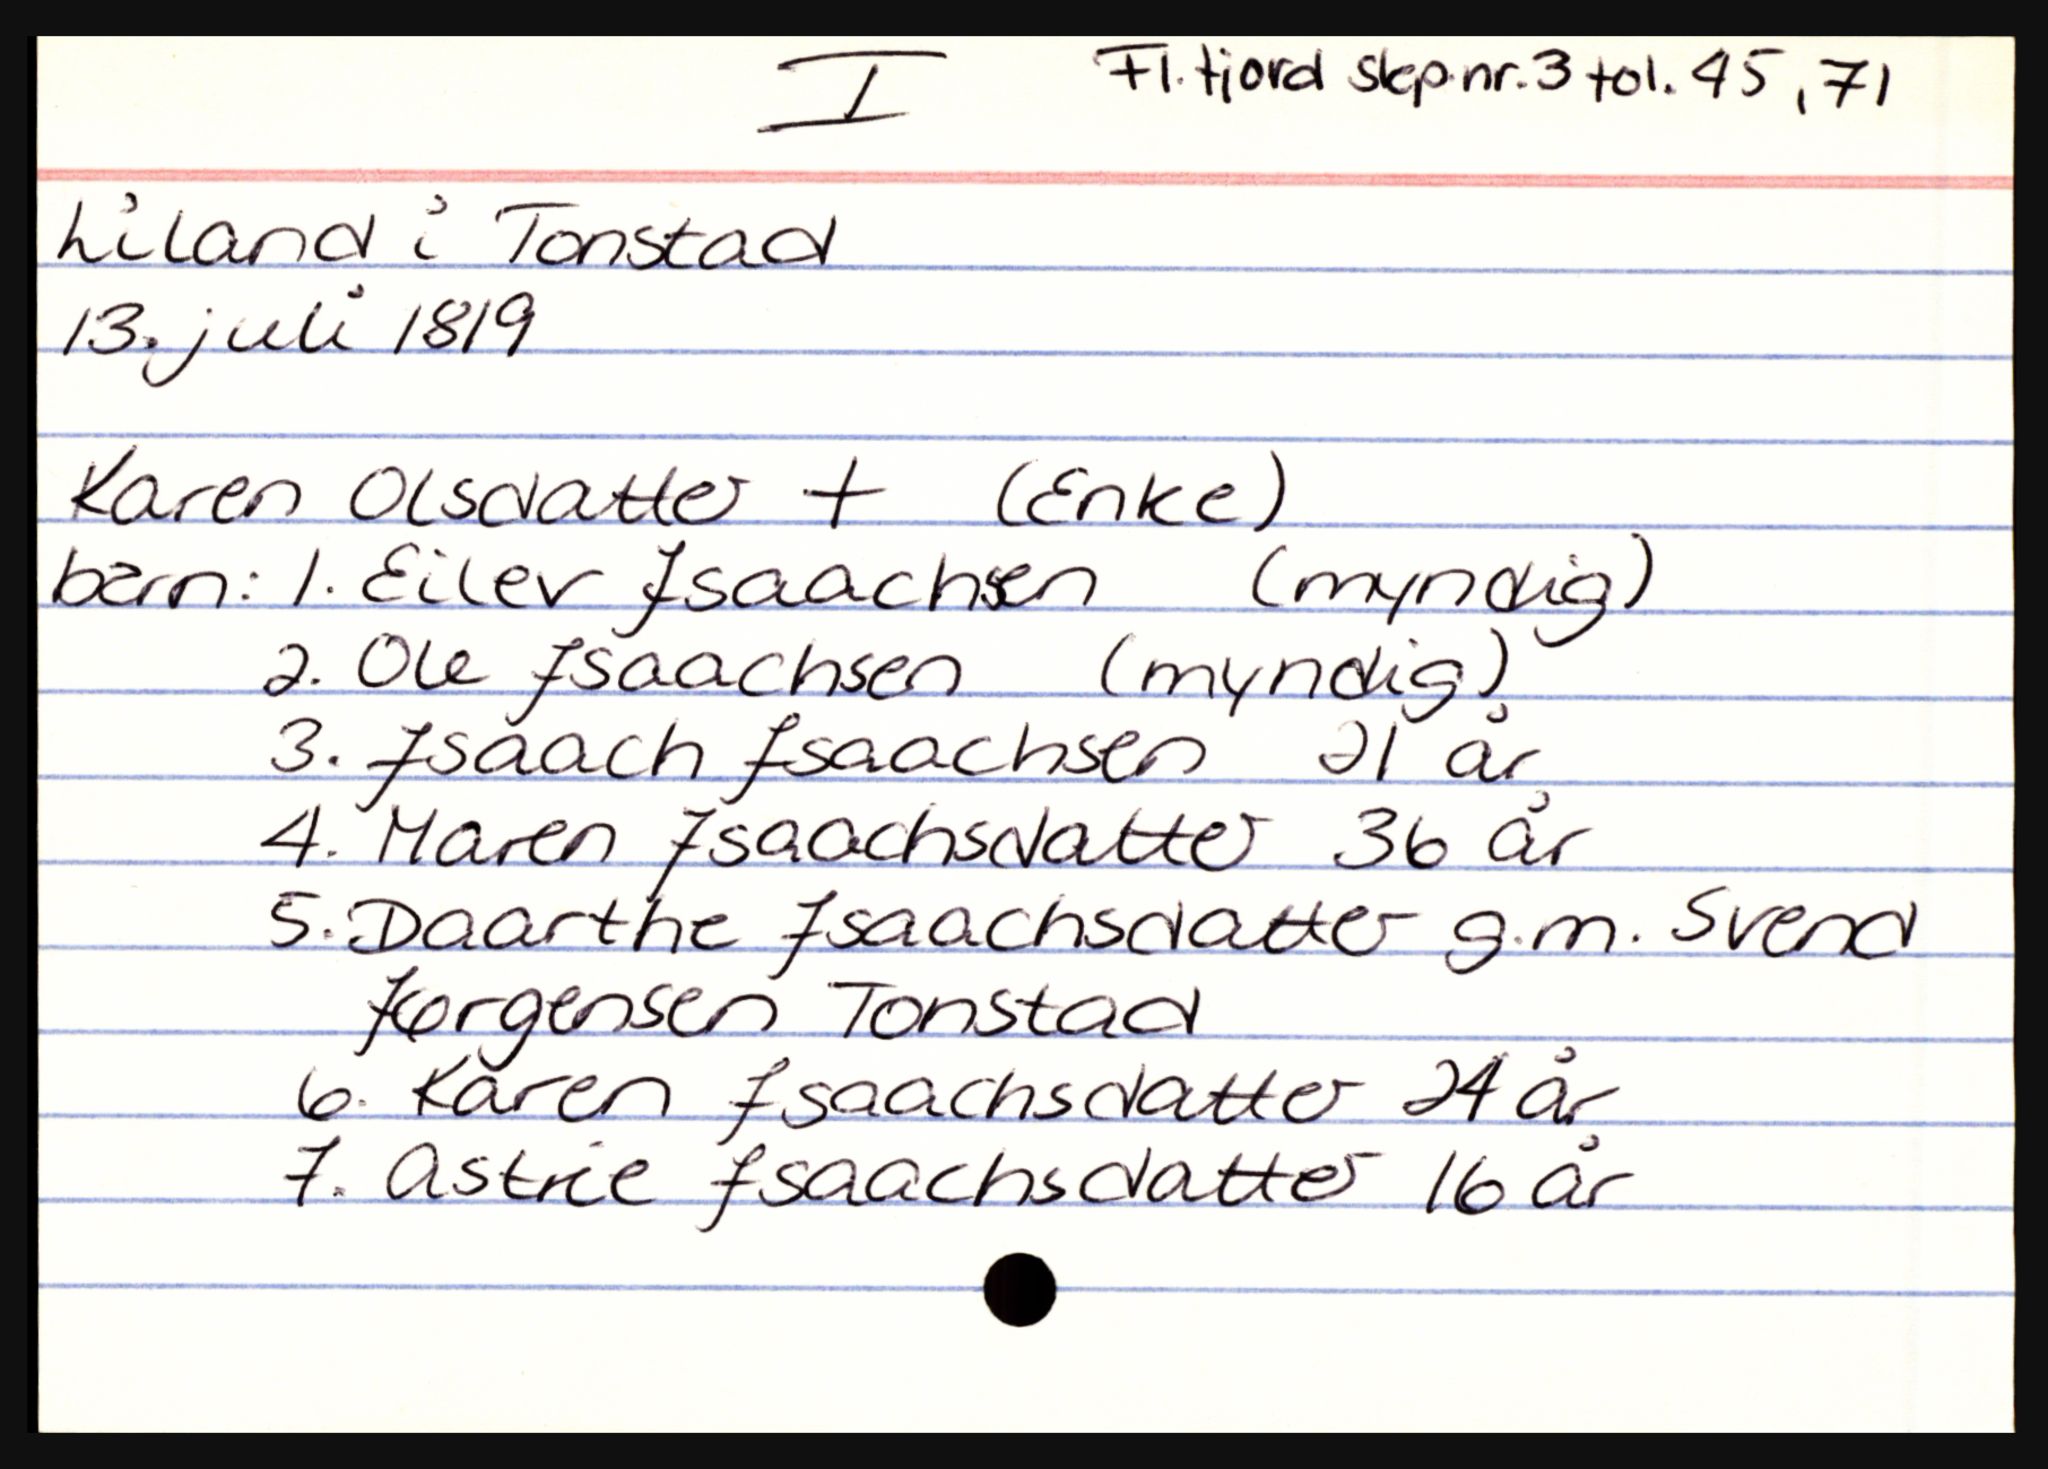 I Fl.fjord skp.nr.3 fol. 45, 71
Liland i Tonstad
13. juli 1819
Karen Olsdatter + (Enke)
barn: 1. Eilev Isaachsen (myndig)
2. Ole Isaachsen (myndig)
3. Isaach Isaachsen 21 år
4. Maren Isaachsdatter 36 år
5. Daarthe Isaachsdatter g.m. Svend
Jørgensen Tonstad
6. Karen Isaachsdatter 24 år
7. Astrie Isaachsdatter 16 år